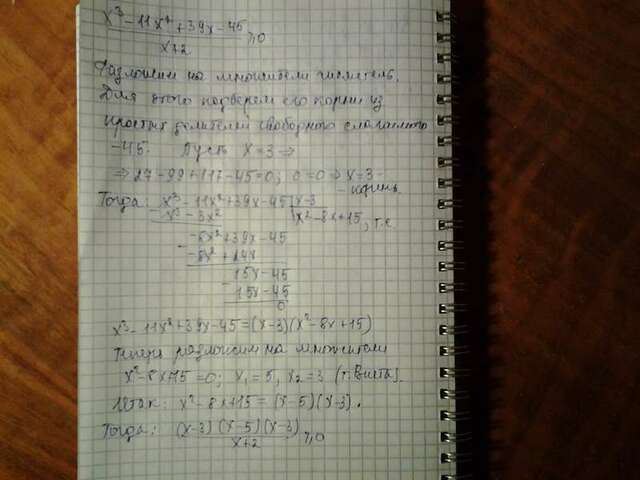 x³ - 11x² + 39x - 45
x+2 ≥ 0
Разложим на множители числитель.
Для этого подберем его корни из
простых делителей свободного слагаемого
-45. Пусть x = 3 ⇒
⇒ 27 - 99 + 117 - 45 = 0; 0 = 0 ⇒ x = 3 -
- корень
Тогда: x³ - 11x² + 39x - 45 | x - 3
- x³ - 3x² | x² - 8x + 15, т.е.
-8x² + 39x - 45
- -8x² + 24x
15x - 45
- 15x - 45
0
x³ - 11x² + 39x - 45 = (x-3)(x² - 8x + 15)
Теперь разложим на множители
x² - 8x + 15 = 0; x₁ = 5, x₂ = 3 (т. Виета).
Итак: x² - 8x + 15 = (x-5)(x-3).
Тогда: (x-3)(x-5)(x-3)
x+2 ≥ 0